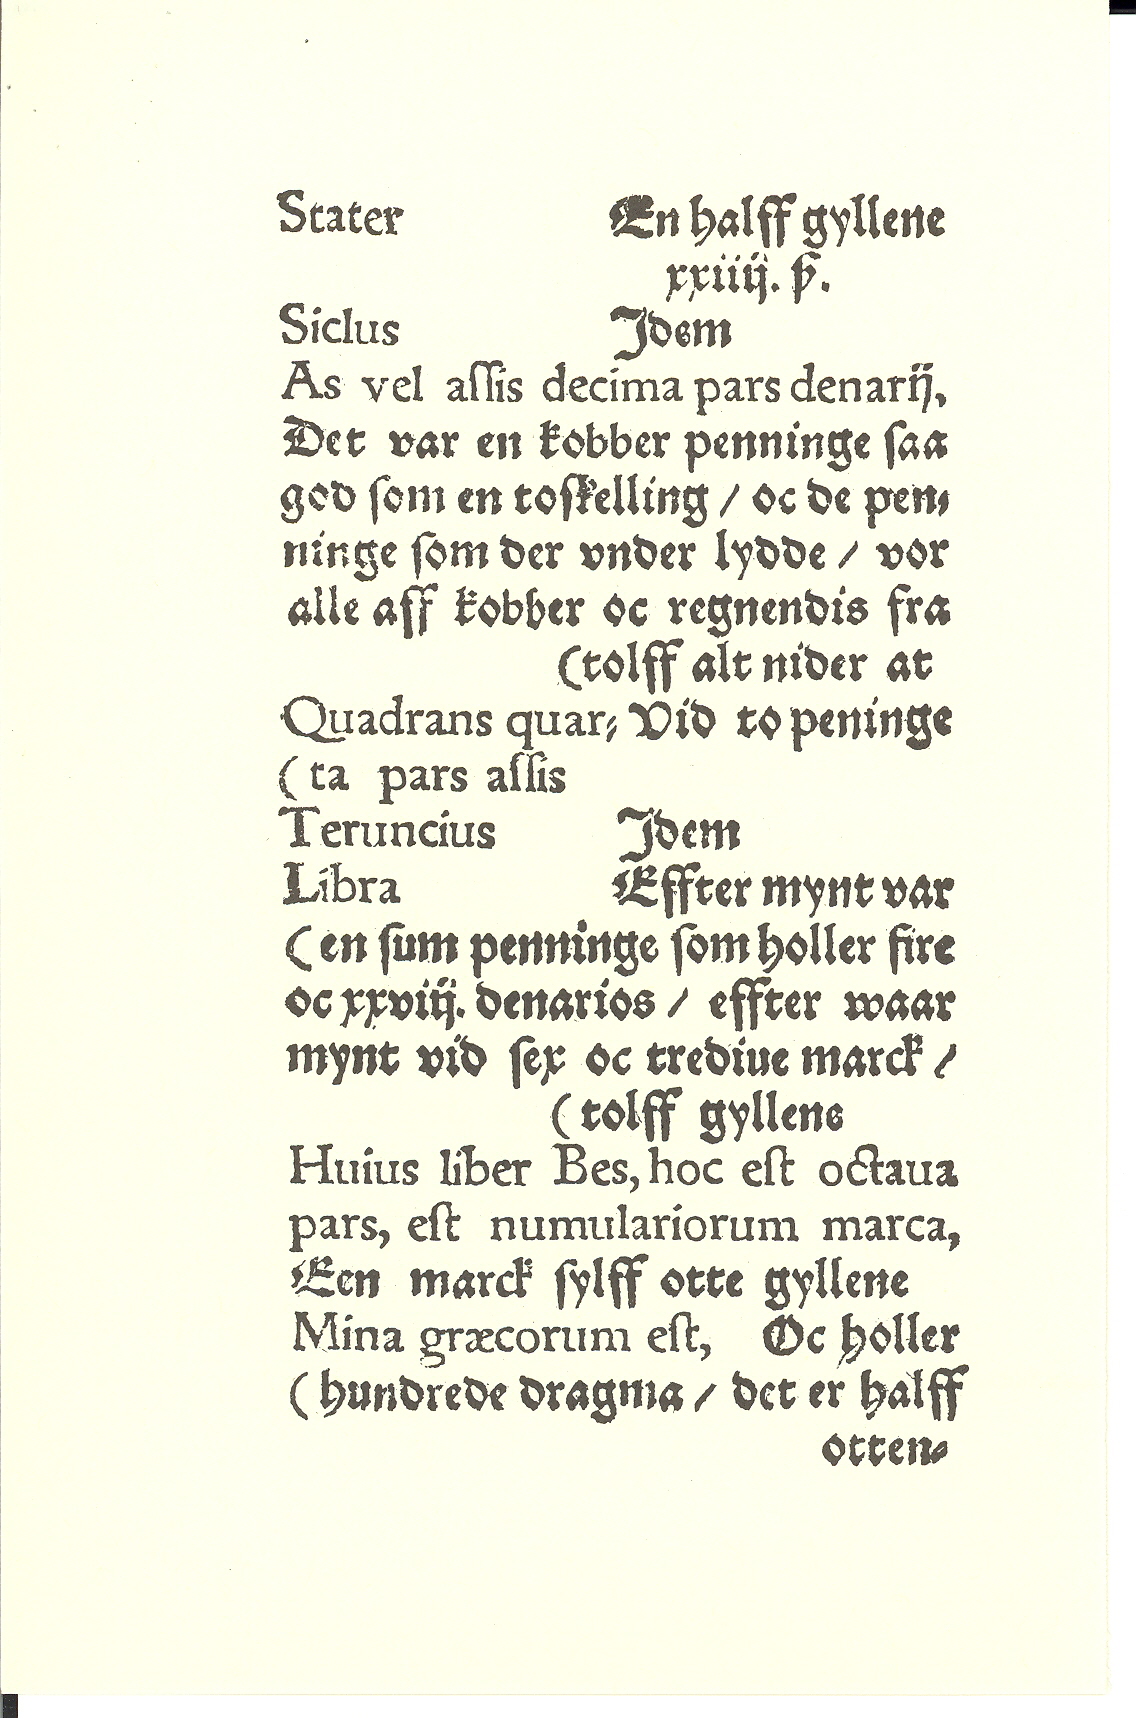 Stater En halff gyllene
xxiiij. ꝟ.
Siclus Jdem
As vel aſſis decima pars denarij,
Det var en kobber penninge ſaa
god ſom en toſkelling / oc de pen⸗
ninge ſom der vnder lydde / vor
alle aff kobber oc regnendis fra
(tolff alt nider at
Quadrans quar⸗ Vid to peninge
(ta pars aſſis
Teruncius Jdem
Libra Effter mynt var
(en ſum penninge ſom holler fire
oc xxviij. denarios / effter waar
mynt vid ſex oc trediue marck /
(tolff gyllene
Huius liber Bes, hoc eſt octaua
pars, eſt numulariorum marca,
Een marck ſylff otte gyllene
Mina græcorum eſt, Oc holler
(hundrede dragma / det er halff
otten⸗